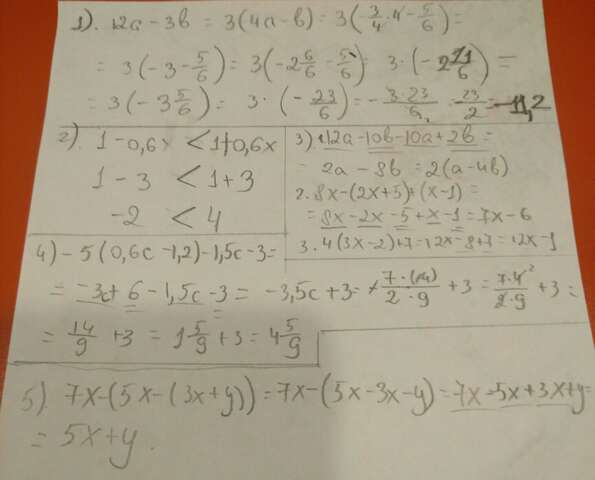 1). 12a - 3b = 3(4a - b) = 3(-3/4 · 4 - 5/6) =
= 3(-3 - 5/6) = 3(-2 6/6 - 5/6) = 3 · (-2 11/6) =
= 3(-3 5/6) = 3 · (-23/6) = -3·23/6 = -23/2 = -11,2
2) 1 - 0,6x < 1 + 0,6x
1 - 3 < 1 + 3
-2 < 4
3) 1. 12a - 10b - 10a + 2b =
= 2a - 8b = 2(a - 4b)
2. 8x - (2x + 5) + (x - 1) =
= 8x - 2x - 5 + x - 1 = 7x - 6
3. 4(3x - 2) + 7 = 12x - 8 + 7 = 12x - 1
4) - 5(0,6c - 1,2) - 1,5c - 3 =
= -3c + 6 - 1,5c - 3 = -3,5c + 3 = - 7·(-4)/2·9 + 3 = 7·4²/2·9 + 3 =
= 14/9 + 3 = 1 5/9 + 3 = 4 5/9
5). 7x - (5x - (3x + y)) = 7x - (5x - 3x - y) = 7x - 5x + 3x + y =
= 5x + y.